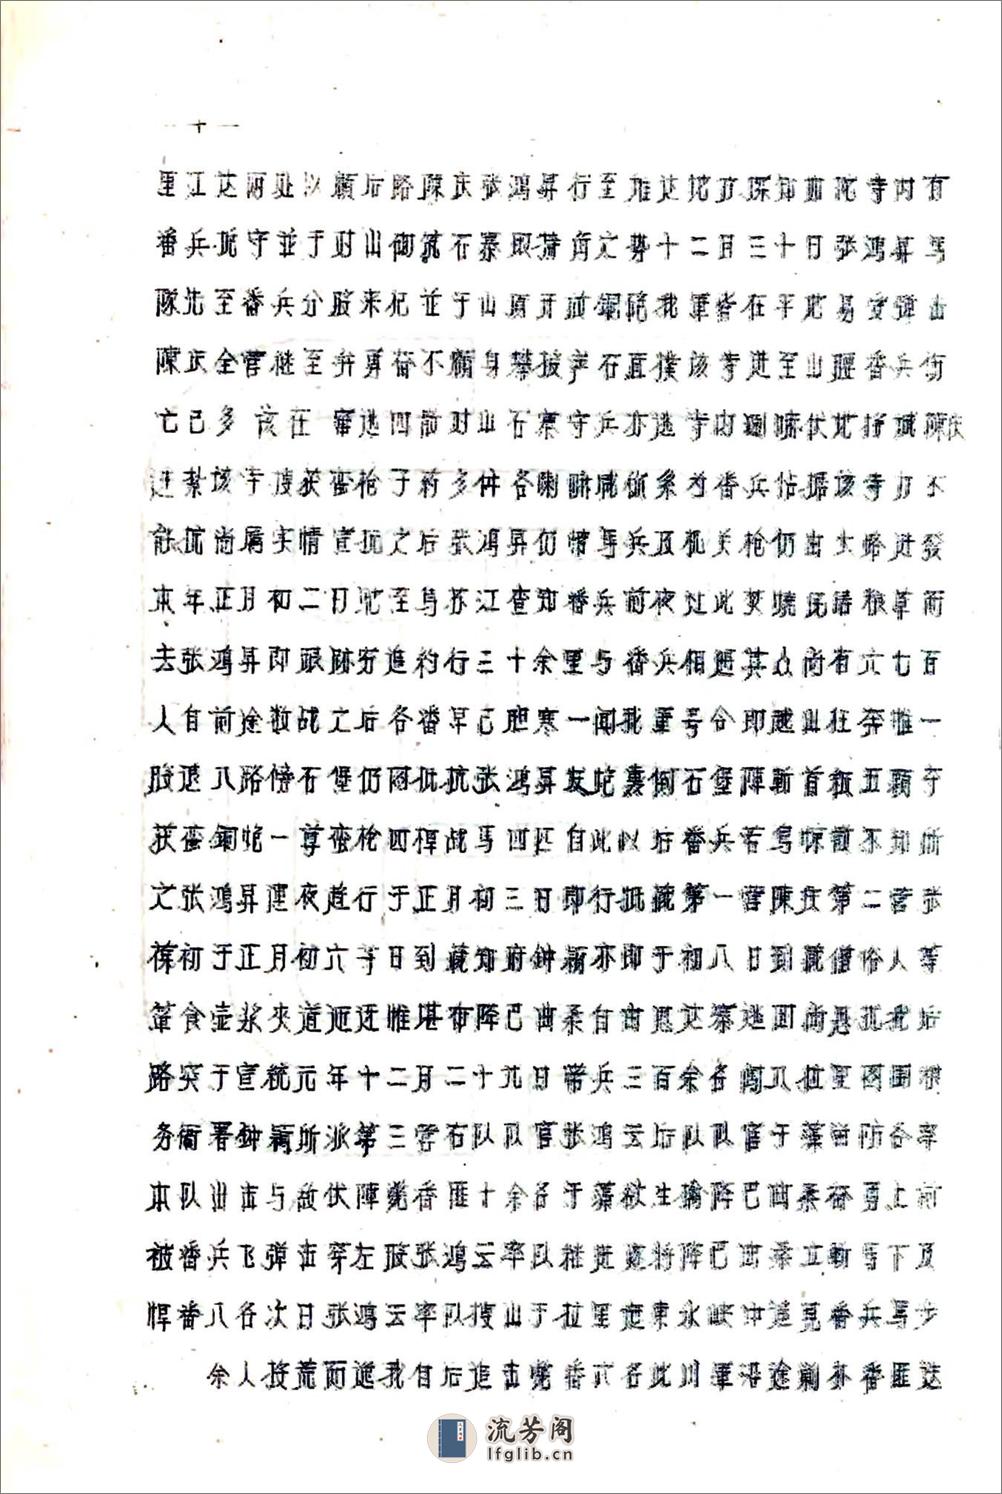 —十—
里江达两处以顾后路陈庆张鸿昇行至堆达地方探知加陀寺内有
番兵抗守並于对山砌筑石寨取犄角之势十二月三十日张鸿昇马
队先至番兵分股来犯並于山头开放铜陀我军皆在平地易受弹击
陈庆全营继至弁勇奋不顾身攀披声石直扑该寺进至山腰番兵伤
亡已多 该在 窜逃四散对山石寨守兵亦逃寺内喇嘛伏地投诚陈庆
进扎该寺搜获蛮枪子药多件各喇嘛咸称系为番兵估据该寺力不
能抗尚属实情宣抚之后张鸿昇仍带马兵及机关枪仍由大路进发
本年正月初二日驰至乌苏江查知番兵前夜过此焚烧优诺粮草而
去张鸿昇即跟踪穷追约行三十余里与番兵相遇其众尚有六七百
人自前途数战之后各番早已胆寒一闻我军号令即越山狂奔惟一
股退入路傍石堡仍图抵抗张鸿昇发炮轰倒石堡阵斩首级五颗夺
获蛮铜炮一尊蛮枪四桿战马四匹自此以后番兵若鸟惊兽不知所
之张鸿昇连夜趱行于正月初三日即行抵藏第一营陈庆第二营张
葆初于正月初六等日到藏知府钟颖亦即于初八日到藏僧俗人等
箪食壶浆夹道迎迓惟堪布降巴曲柔自由恩达寨逃回尚思扰我后
路突于宣统元年十二月二十九日带兵三百余名闯入拉里图围粮
务衙署钟颖所派第三营右队队官张鸿云后队队官于藻留防各率
本队出击与敌伏阵毙番匪十余名于藻欲生擒降巴曲柔奋勇上前
被番兵飞弹击穿左股张鸿云率队继进竟将降巴曲柔立斩马下及
悍番八名次日张鸿云率队搜山于拉里走东水峡冲逢见番兵马步
余人披荒而逃我自后追击毙番六名此川军沿途剿办番匪达
流芳阁
lfglib.cn